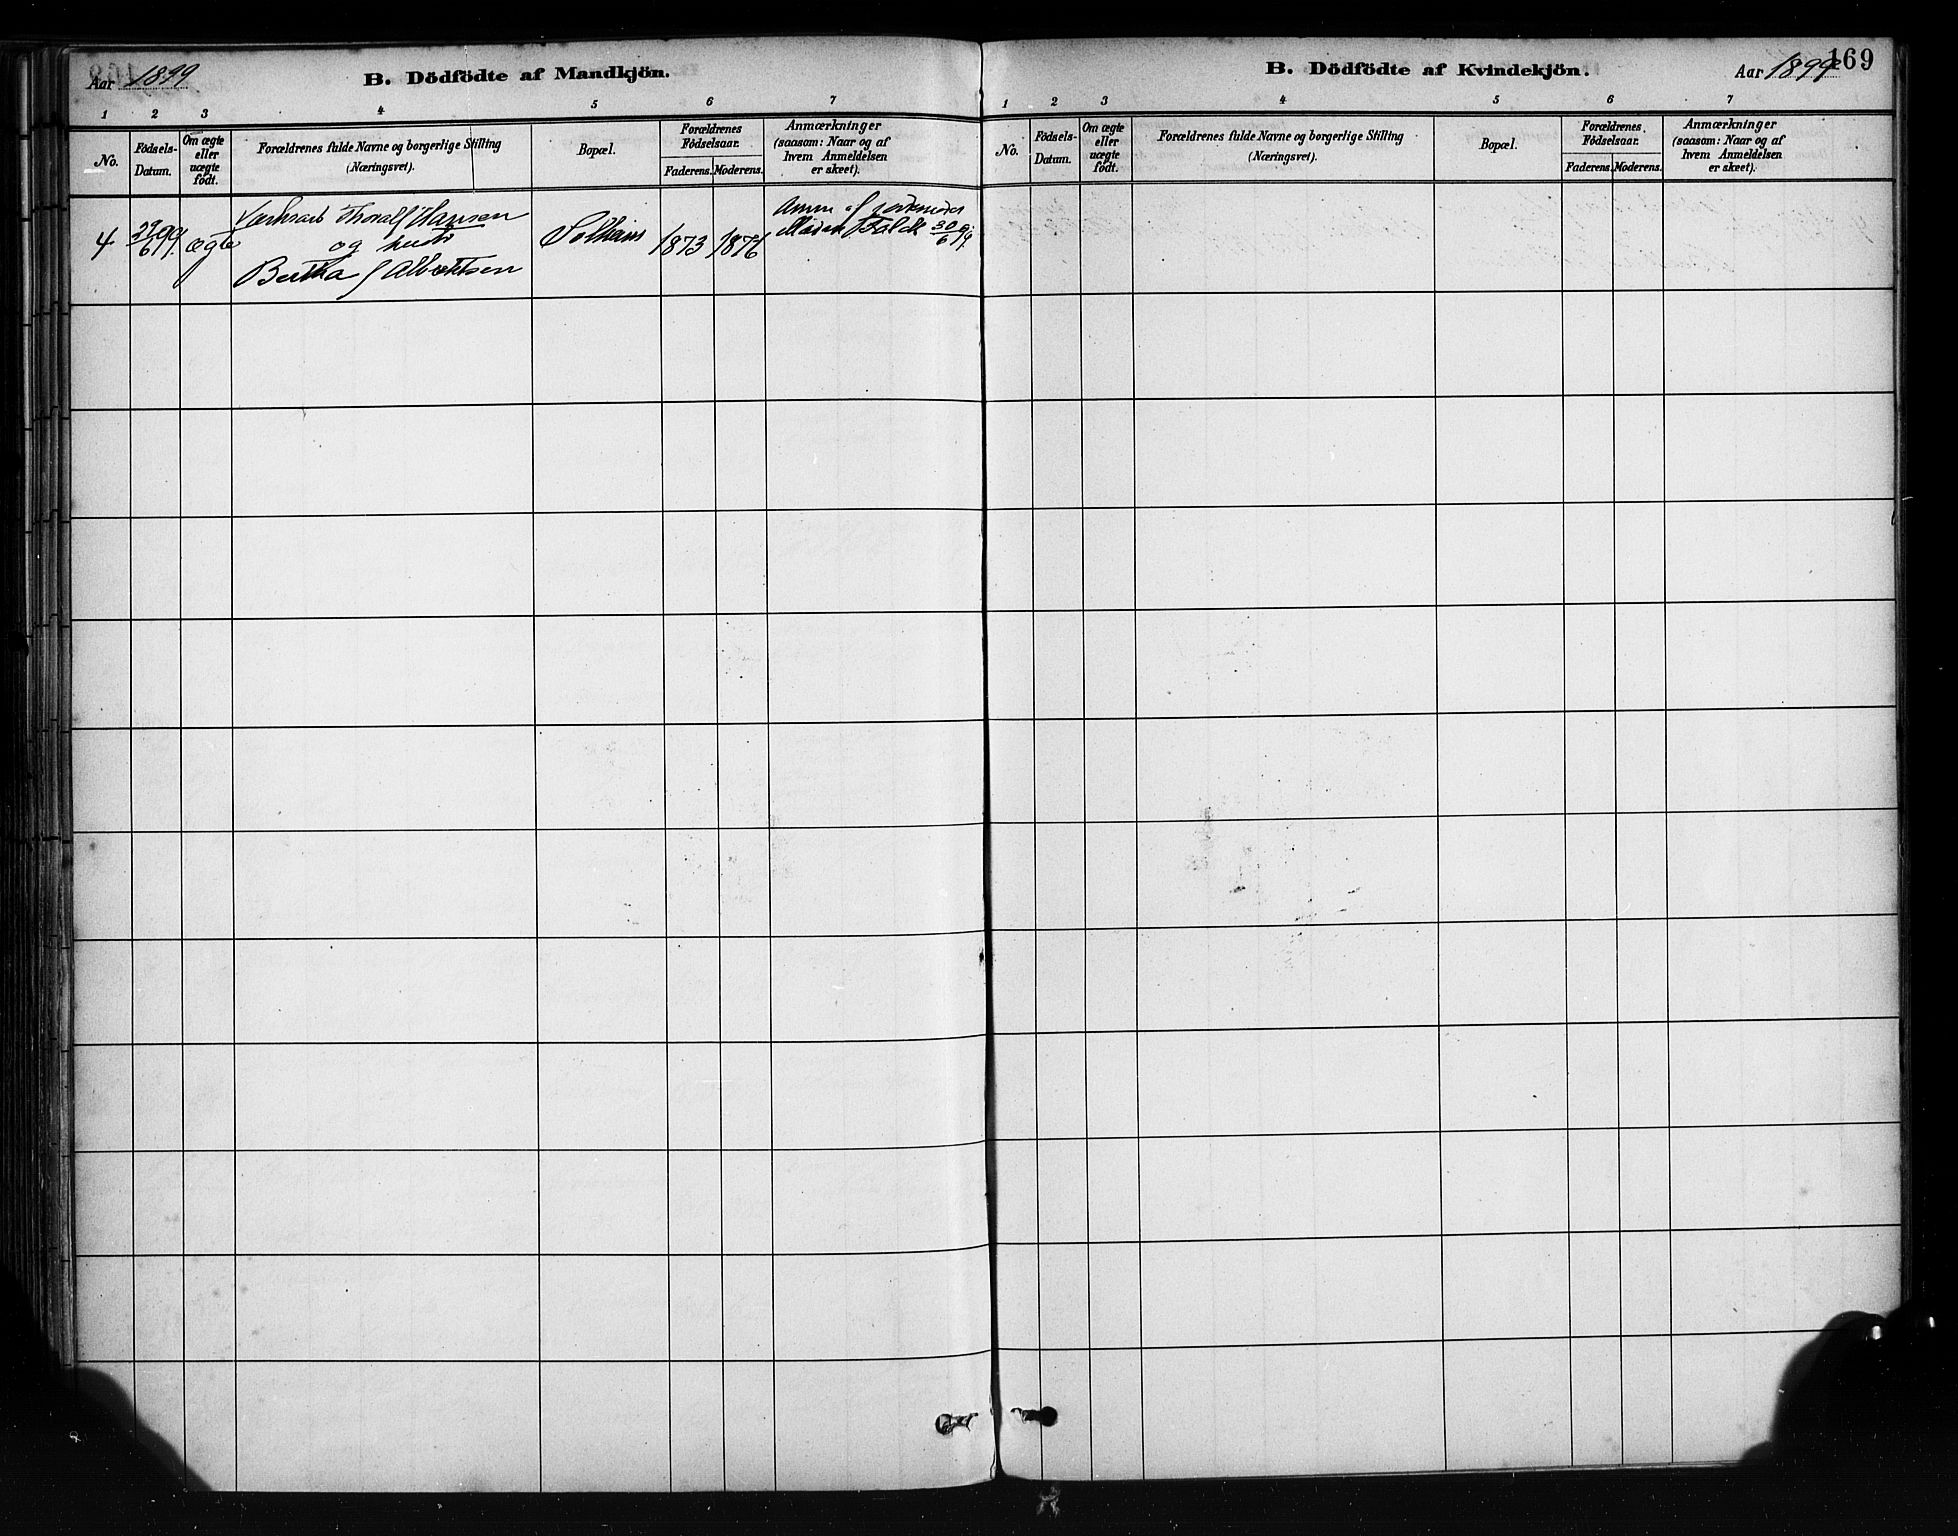 Aar 1899
B. Dödfödte af Mandkjön.
1 2 3 4 5 6 7
No.
Födsels-
Datum.
Om ægte
eller
uægte
födt.
Forældrenes fulde Navne og borgerlige Stilling
(Næringsvei).
Bopæl.
Forældrenes
Födselsaar.
Faderens. Moderens.
Anmærkninger
(saasom: Naar og af
hvem Anmeldelsen
er skeet).
4
29/6 99. ægte
Thoralf Hansen
og hustr
Bertha J Albertsen
Solheim
1873 1876
af jordemoder
Falck 30/6 99.
169
B. Dödfödte af Kvindekjön.
Aar 1899
1 2 3 4 5 6 7
No.
Födsels-
Datum.
Om ægte
eller
uægte
födt.
Forældrenes fulde Navne og borgerlige Stilling
(Næringsvei).
Bopæl.
Forældrenes
Födselsaar.
Faderens. Moderens.
Anmærkninger
(saasom: Naar og af
hvem Anmeldelsen
er skeet).